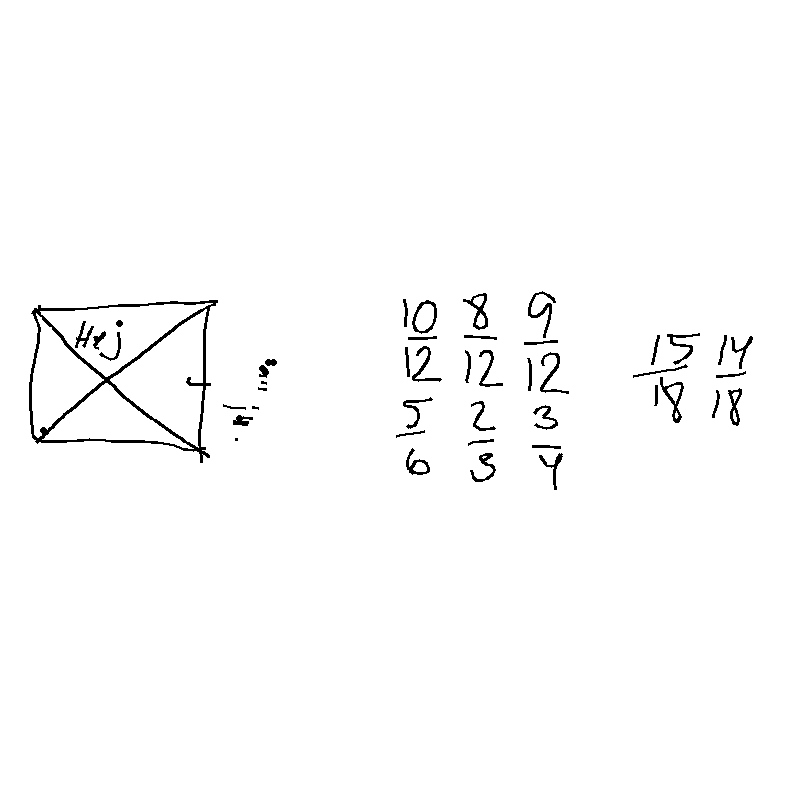 Hej
10/12 8/12 9/12
5/6 2/3 3/4
15/18 14/18